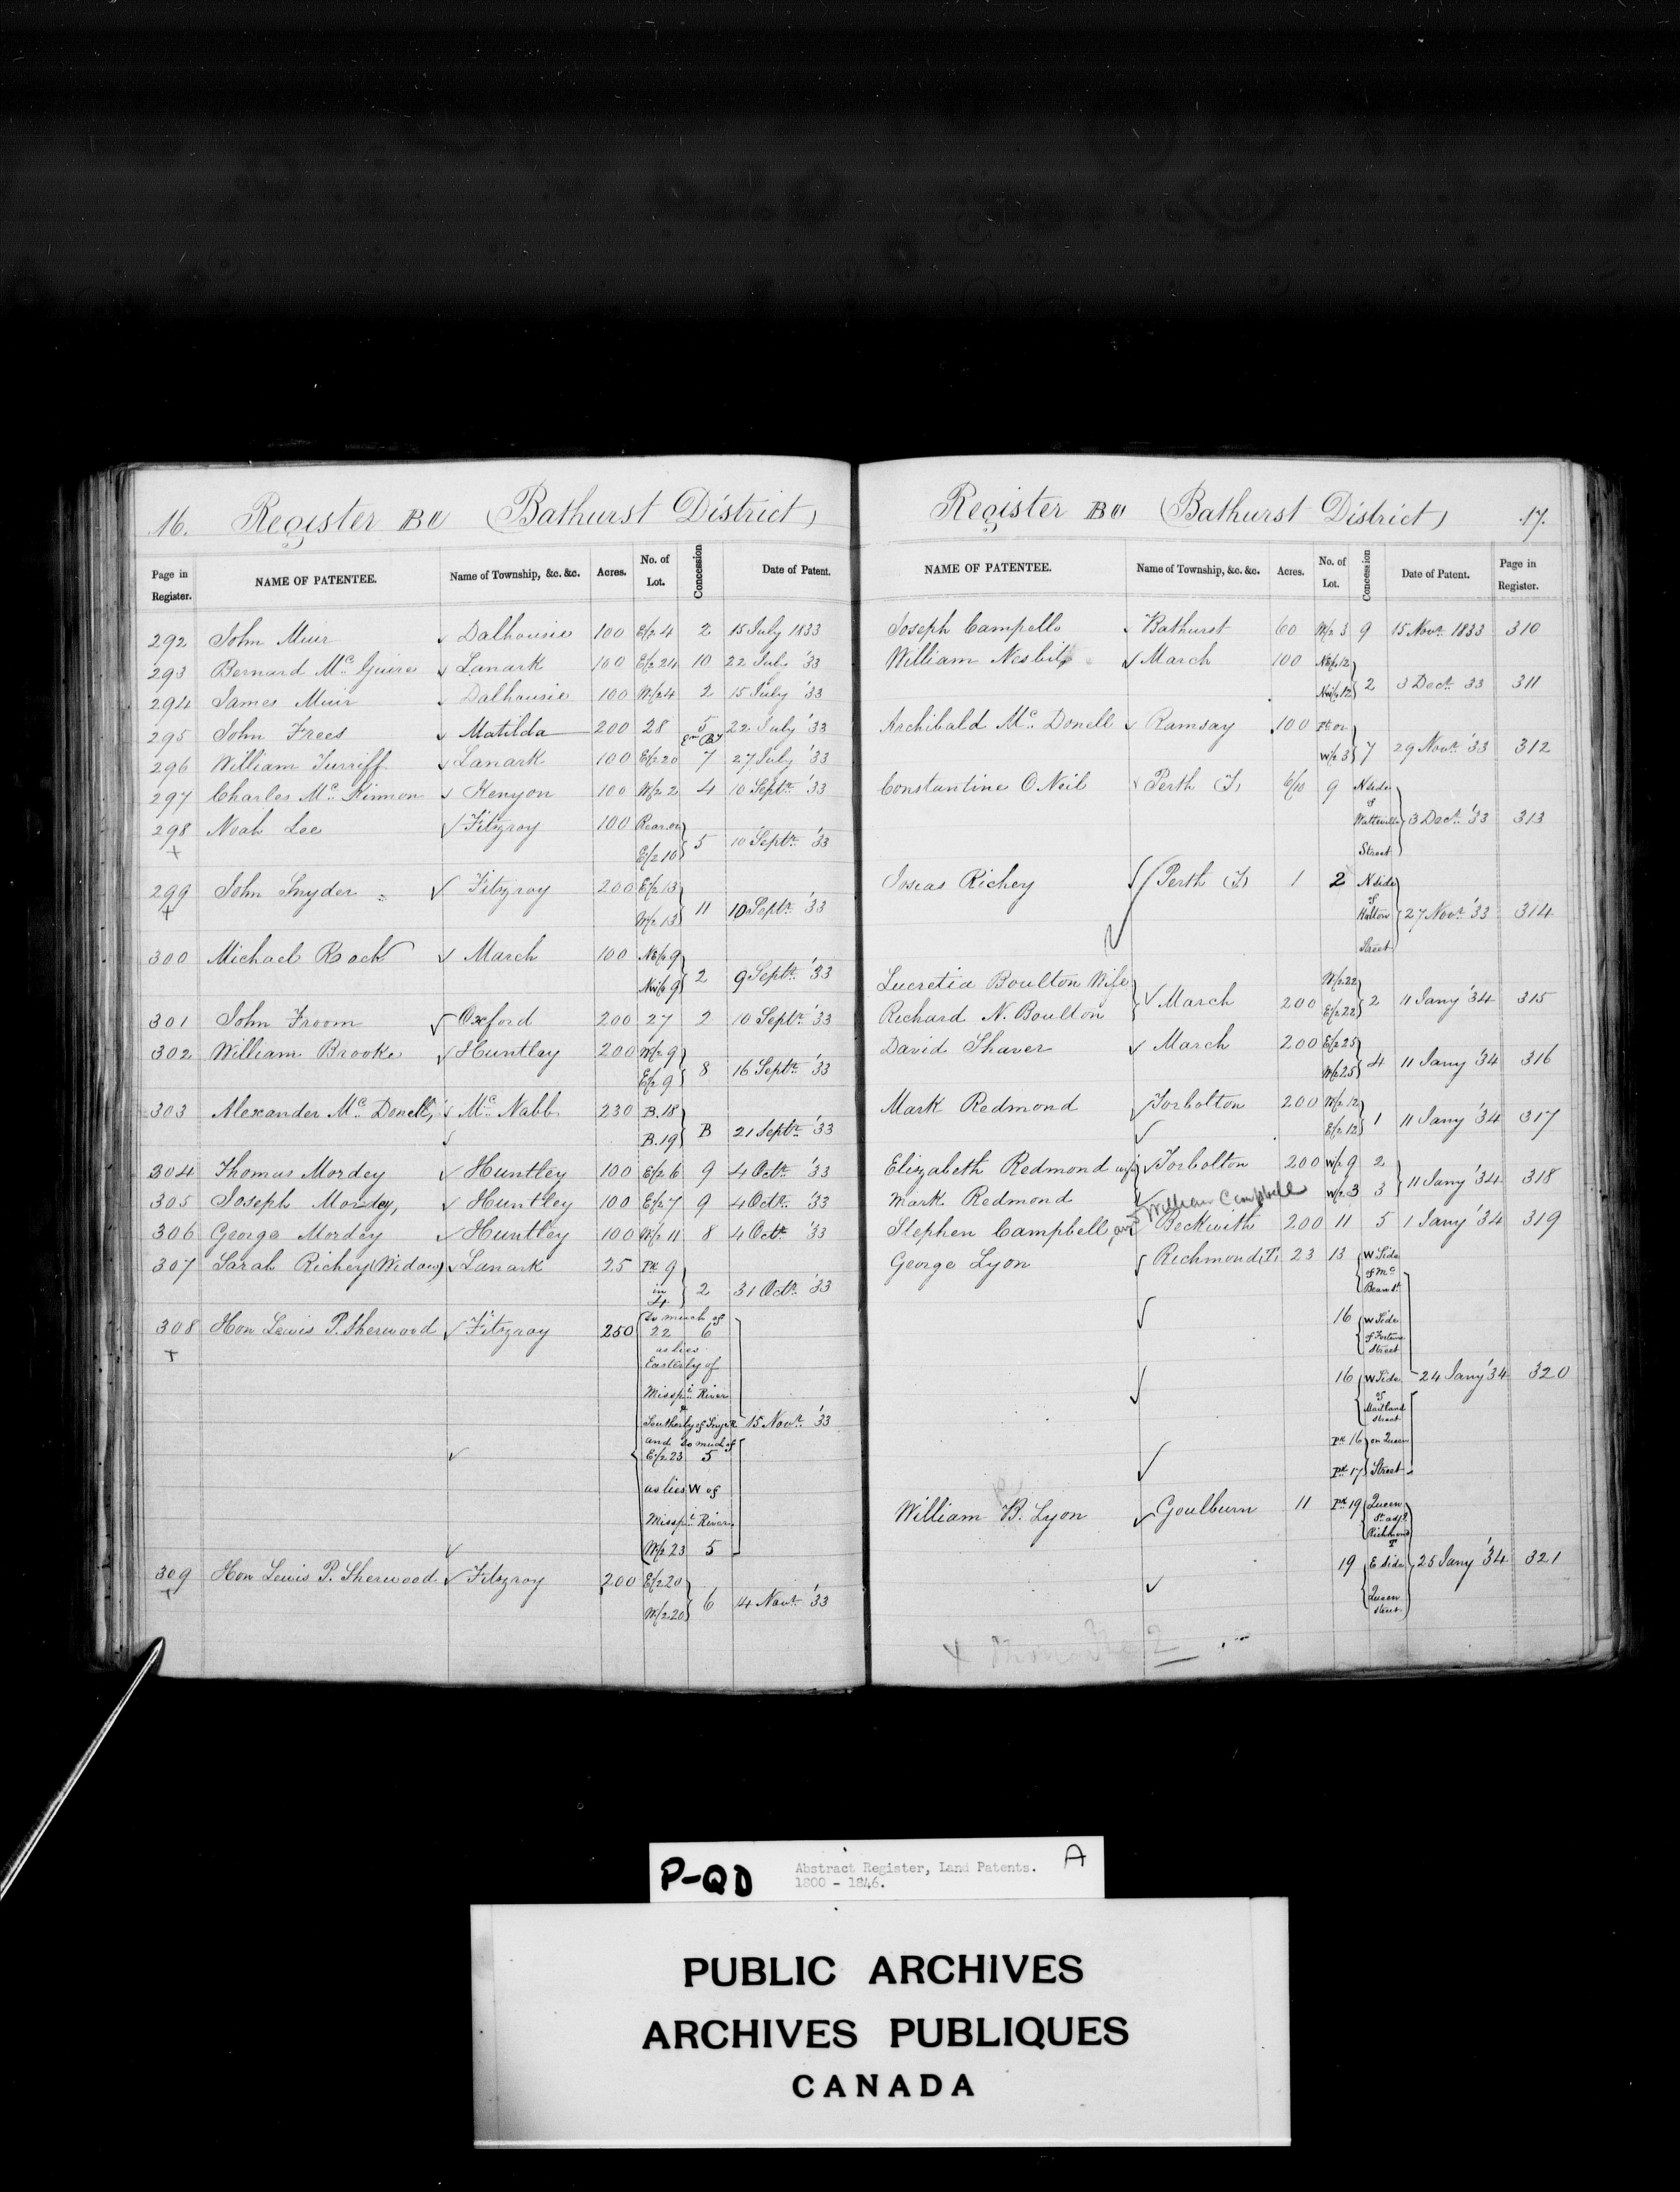 16. Register BC (Bathurst District)
Page in Register. NAME OF PATENTEE. Name of Township, &c. &c. Acres. No. of Lot. Concession Date of Patent.
292 John Muir Dalhousie 100 E/2 4 2 15 July 1833
293 Bernard Mc Guire Lanark 100 E/2 24 10 22 July '33
294 James Muir Dalhousie 100 W/2 4 2 15 July '33
295 John Frees Matilda 200 28 5 22 July '33
296 William Turriff Lanark 100 E/2 20 7 27 July '33
297 Charles Mc Kinnon Kenyon 100 W/2 2 4 10 Septr '33
298 Noah Lee Fitzroy 100 Rear or
+ E/2 10 5 10 Septr '33
299 John Snyder Fitzroy 200 E/2 13
+ W/2 13 11 10 Septr '33
300 Michael Rock March 100 NE/2 9
NW/2 9 2 9 Septr '33
301 John Froom Oxford 200 27 2 10 Septr '33
302 William Brooke Huntley 200 W/2 9
E/2 9 8 16 Septr '33
303 Alexander Mc Donell, Mc Nabb 230 B.18
B.19 B 21 Septr '33
304 Thomas Mordey Huntley 100 E/2 6 9 4 Octr '33
305 Joseph Mordey, Huntley 100 E/2 7 9 4 Octr '33
306 George Mordey Huntley 100 W/2 11 8 4 Octr '33
307 Sarah Richey (Widow) Lanark 25 Pt 9
in
4 2 31 Octr '33
308 Hon Lewis P. Sherwood Fitzroy 250 So much of
22 6
+ as lies
Easterly of
Misspi River
&
Southerly of
15 Novr '33
and so much of
E/2 23 5
as lies W of
Misspi River
W/2 23 5
309 Hon Lewis P. Sherwood Fitzroy 200 E/2 20
+ W/2 20 6 14 Novr '33
Register BC (Bathurst District) 17.
NAME OF PATENTEE. Name of Township, &c. &c. Acres. No. of Lot. Concession Date of Patent. Page in Register.
Joseph Campell Bathurst 60 W/2 3 9 15 Novr 1833 310
William Nesbitt March 100 NE/2 12
NW/2 12 2 3 Decr 33 311
Archibald Mc Donell Ramsay 100 Pt or
W/2 3 7 29 Novr '33 312
Constantine O Neil Perth (T) 6/10 9 N side
of
Watteville 3 Decr '33 313
Street
Joseas Richey Perth (T) 1 2 N side
of
Halton 27 Novr '33 314
Street
Lucretia Boulton Wife W/2 22
Richard N. Boulton March 200 E/2 22 2 11 Jany '34 315
David Shaver March 200 E/2 25
W/2 25 4 11 Jany '34 316
Mark Redmond Torbolton 200 W/2 12
E/2 12 1 11 Jany '34 317
Elizabeth Redmond wife Torbolton 200 W/2 9 2
Mark Redmond W/2 3 3 11 Jany '34 318
William Campbell
Stephen Campbell, and Beckwith 200 11 5 1 Jany '34 319
George Lyon Richmond (T) 23 13 W Side
of Mc
Bean St
16 W Side
of Fortune
Street
16 W Side 24 Jany '34 320
of
Maitland
Street
Pt 16 on Queen
Pt 17 Street
William B. Lyon Goulburn 11 Pt 19 Queen
St adjg
Richmond
T
19 E side 25 Jany '34 321
Queen
Street
P-QD Abstract Register, Land Patents. A
1800 - 1846.
PUBLIC ARCHIVES
ARCHIVES PUBLIQUES
CANADA